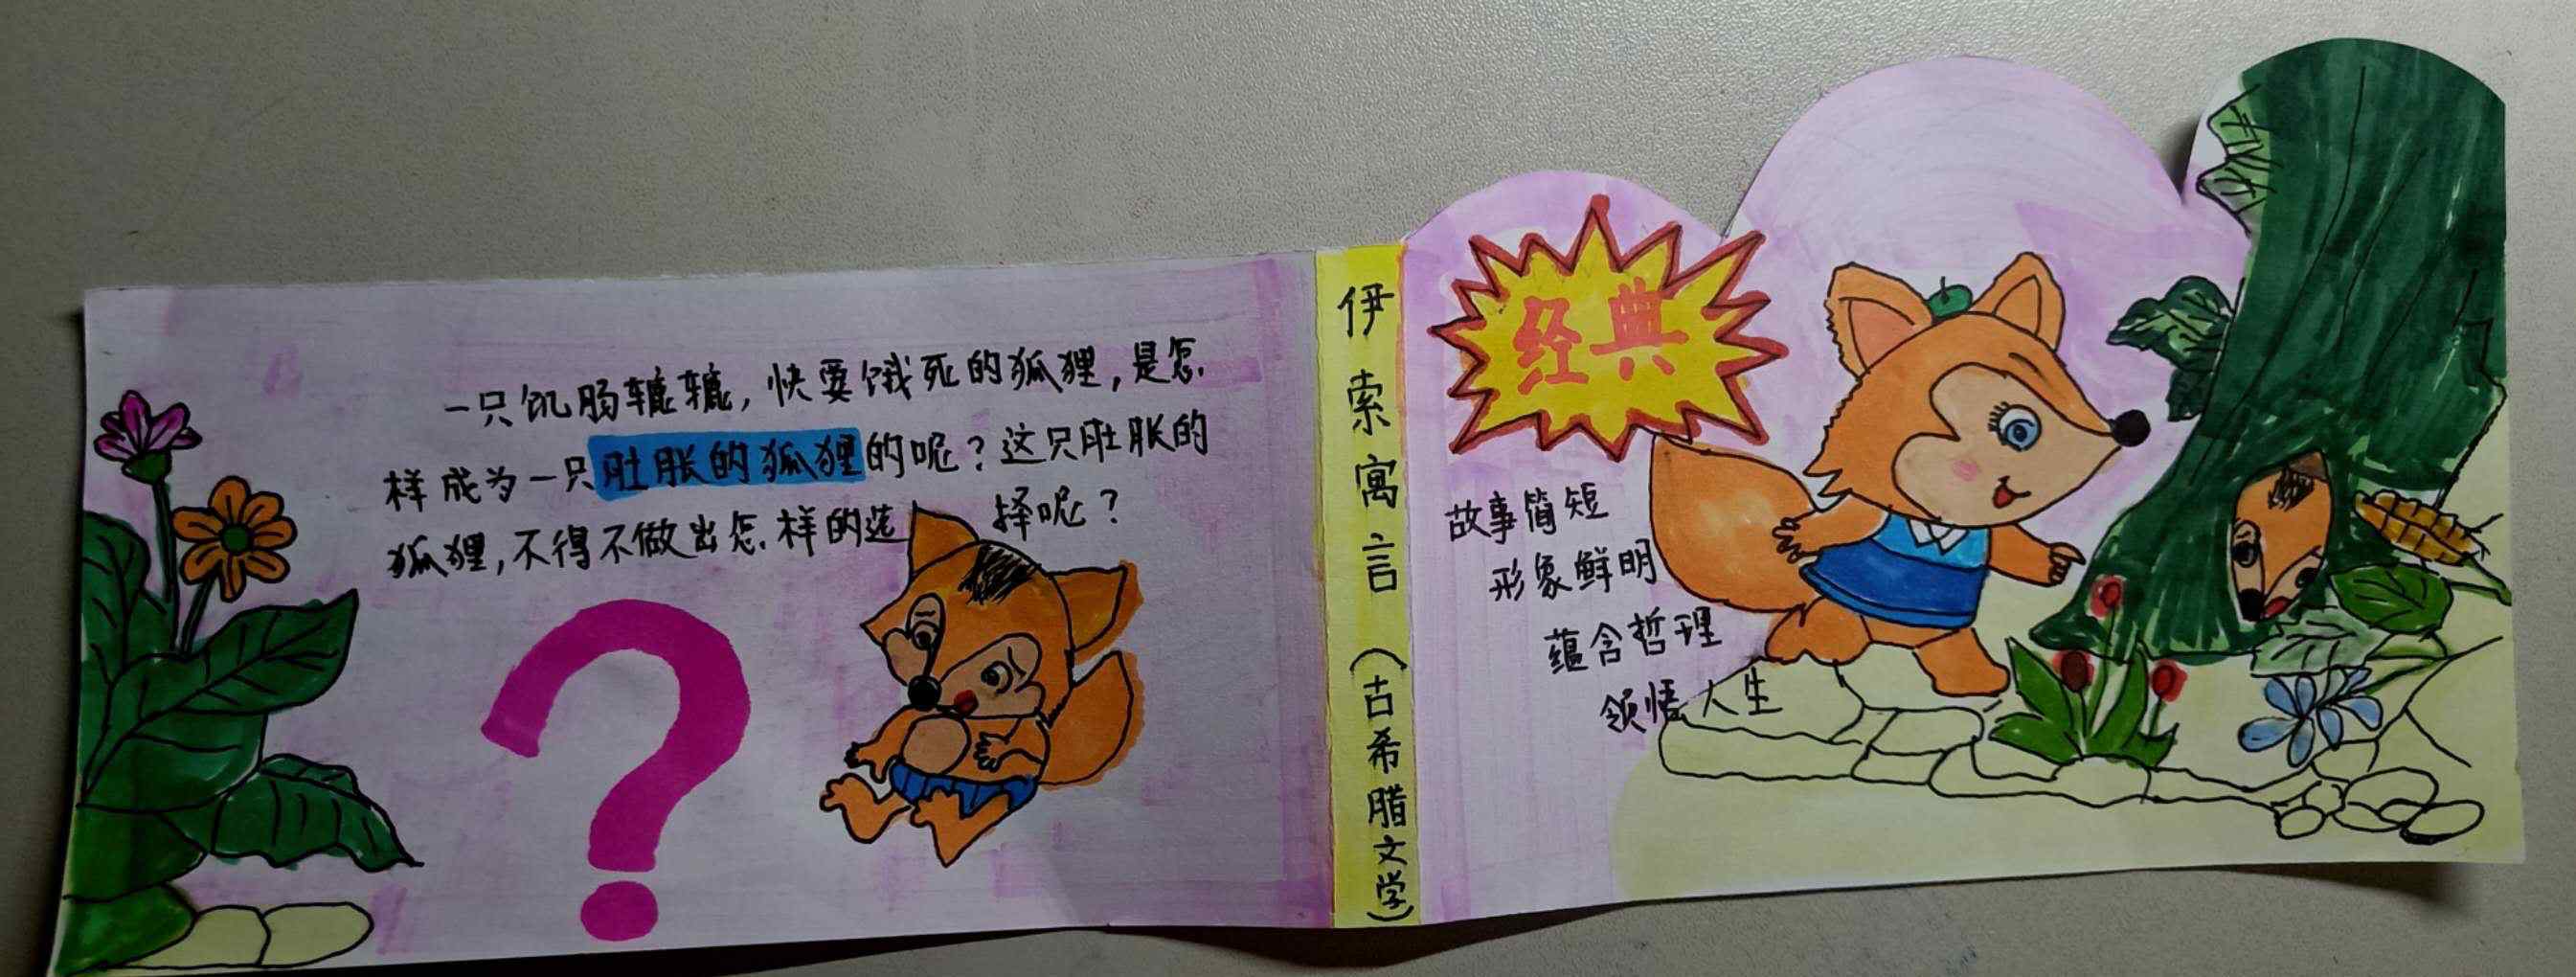 一只饥肠辘辘，快要饿死的狐狸，是怎
样成为一只肚胀的狐狸的呢？这只肚胀的
狐狸，不得不做出怎样的选择呢？
伊索寓言（古希腊文学）
经典
故事简短
形象鲜明
蕴含哲理
领悟人生